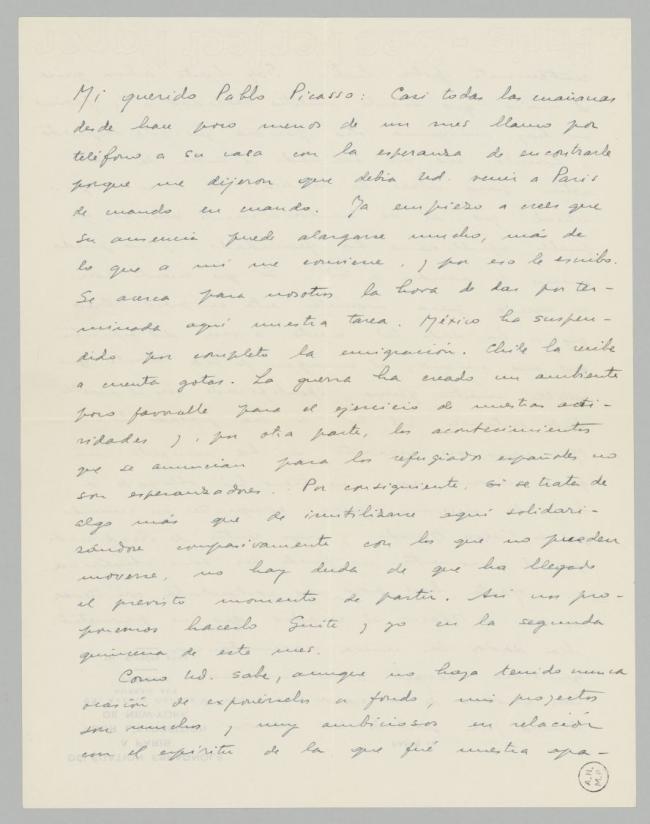 Mi querido Pablo Picasso: Casi todas las mañanas
desde hace poco menos de un mes llamo por
teléfono a su casa con la esperanza de encontrarle
porque me dijeron que debía Ud. venir a Paris
de cuando en cuando. Ya empiezo a creer que
su ausencia puede alargarse mucho, más de
lo que a mi me conviene, y por eso le escribo.
Se acerca para nosotros la hora de dar por ter-
minada aquí nuestra tarea. México ha suspen-
dido por completo la emigración. Chile la recibe
a cuenta gotas. La guerra ha creado un ambiente
poco favorable para el ejercicio de nuestras acti-
vidades y, por otra parte, los acontecimientos
que se anuncian para los refugiados españoles no
son esperanzadores. Por consiguiente, si se trata de
algo más que de inutilizarse aquí solidari-
zándose compasivamente con los que no pueden
moverse, no hay duda de que ha llegado
el previsto momento de partir. Así nos pro-
ponemos hacerlo Guite y yo en la segunda
quincena de este mes.
Como Ud. sabe, aunque no haya tenido nunca
ocasión de exponérselos a fondo, mis proyectos
son muchos y muy ambiciosos en relación
con el espíritu de la que fué nuestra epa-